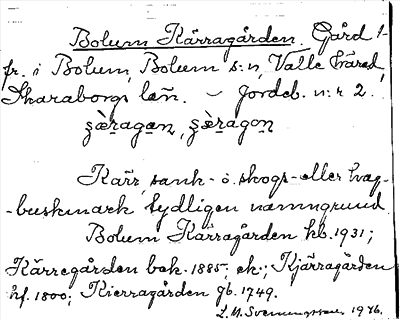 Bolum Kärragården. Gård 1-
fr. i Bolum, Bolum s:n, Valle härad,
Skaraborgs län. – Jordeb. n:r 2.
Kärr, sank- o. skogs- eller
-buskmark tydligen namngrund.
Bolum Kärragården hb. 1931;
Kärregården bok. 1885, ek.; Kjärragården
hf. 1800; Kierragården gb. 1749.
1916.